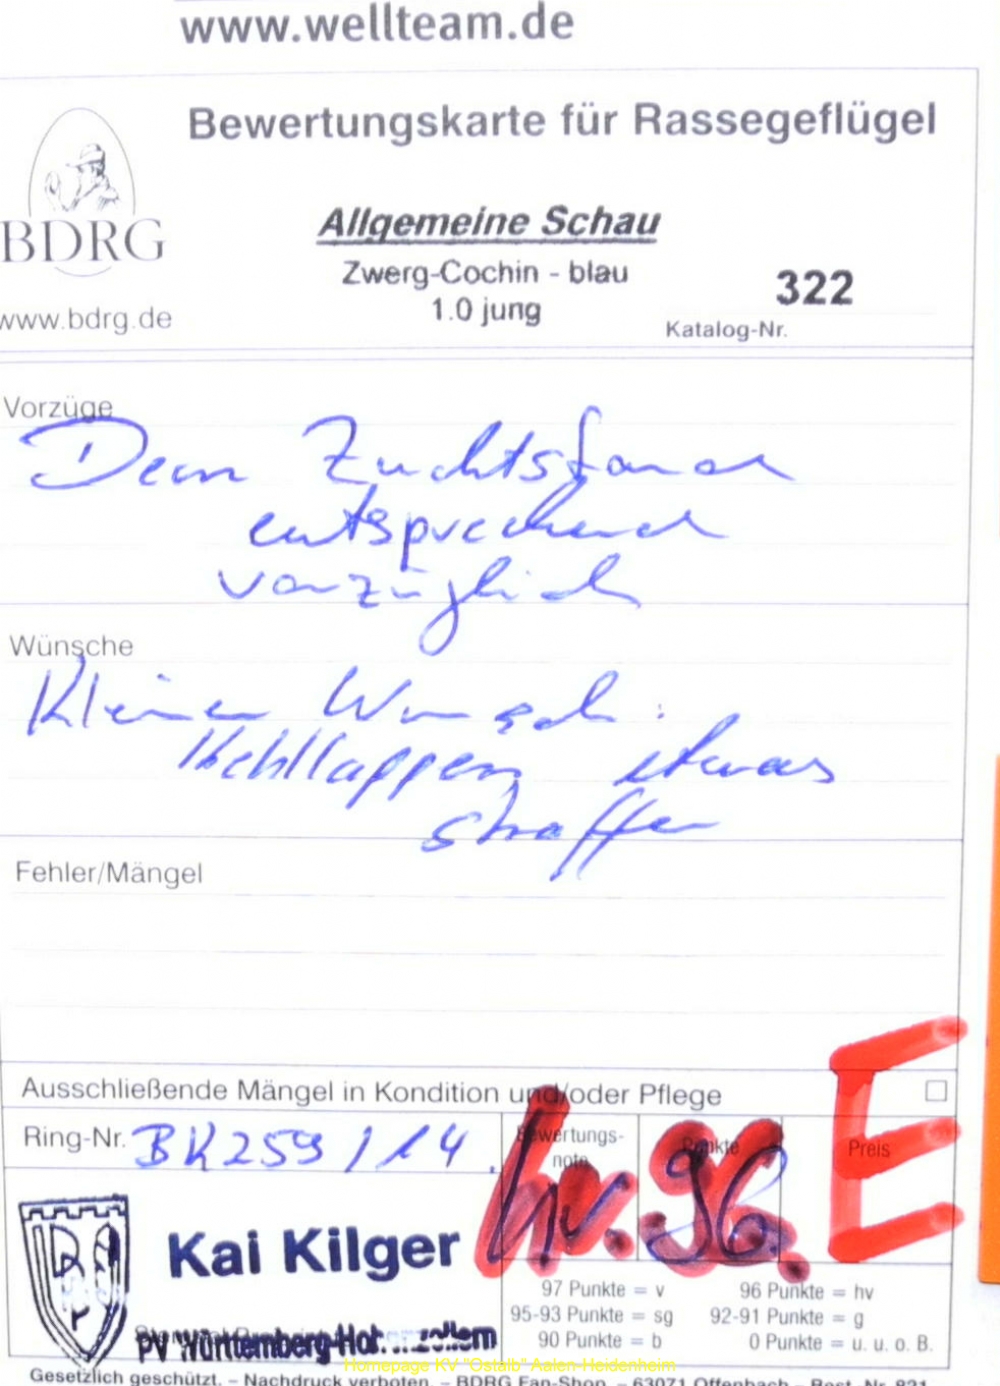 www.wellteam.de
Bewertungskarte für Rassegeflügel
BDRG
www.bdrg.de
Allgemeine Schau
Zwerg-Cochin - blau
1.0 jung
322
Katalog-Nr.
Vorzüge
Dem Zuchtstand
entsprechend
vorzüglich
Wünsche
Kleiner Wunsch:
Kehllappen etwas
straffer
Fehler/Mängel
Ausschließende Mängel in Kondition und/oder Pflege
Ring-Nr. BK259/14
Bewertungs-
note
hv.
Punkte
96.
Preis
E
Kai Kilger
PV Württemberg-Hohenzollern
97 Punkte = v
96 Punkte = hv
95-93 Punkte = sg
92-91 Punkte = g
90 Punkte = b
0 Punkte = u. u. o. B.
Homepage KV "Ostalb" Aalen-Heidenheim
Gesetzlich geschützt. – Nachdruck verboten. – BDRG Fan-Shop – 63071 Offenbach – Best.-Nr. 821